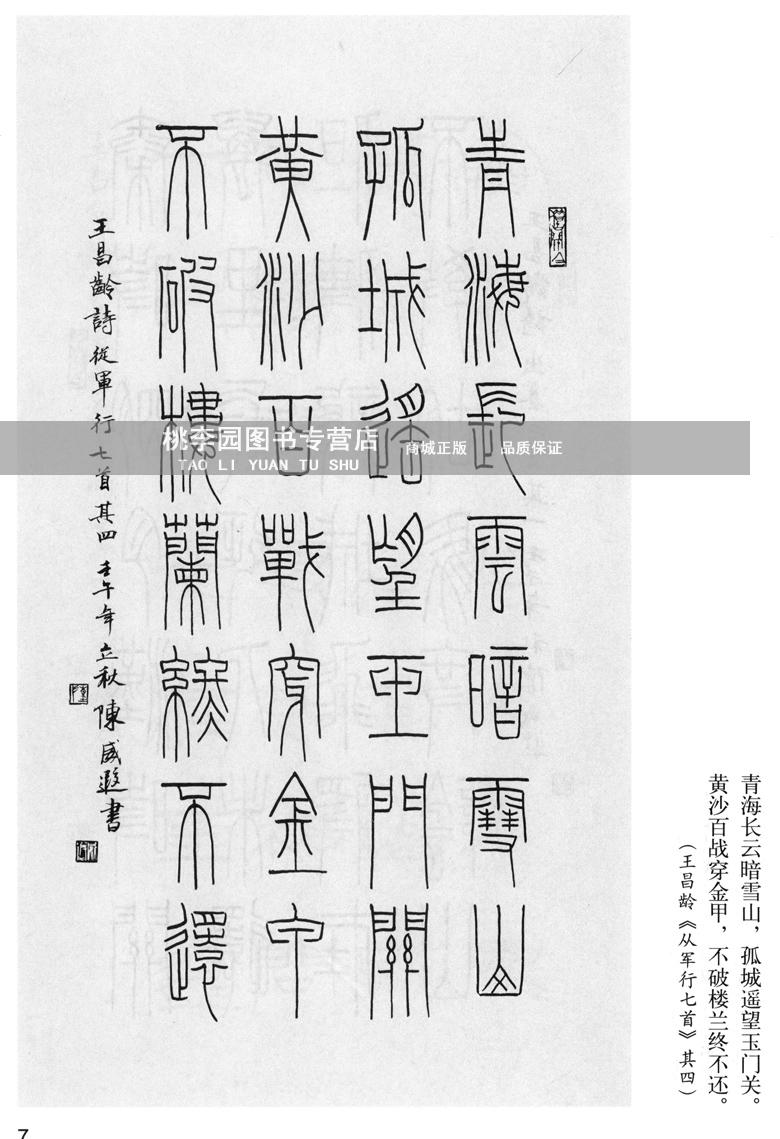 青海長雲暗雪山
孤城遥望玉門關
黃沙百戰穿金甲
不破樓蘭終不還
王昌齡詩從軍行七首其四 壬午年立秋陳威遐書
桃李园图书专营店
TAO LI YUAN TU SHU
商城正版 品质保证
青海长云暗雪山，孤城遥望玉门关。
黄沙百战穿金甲，不破楼兰终不还。
（王昌龄《从军行七首》其四）
7